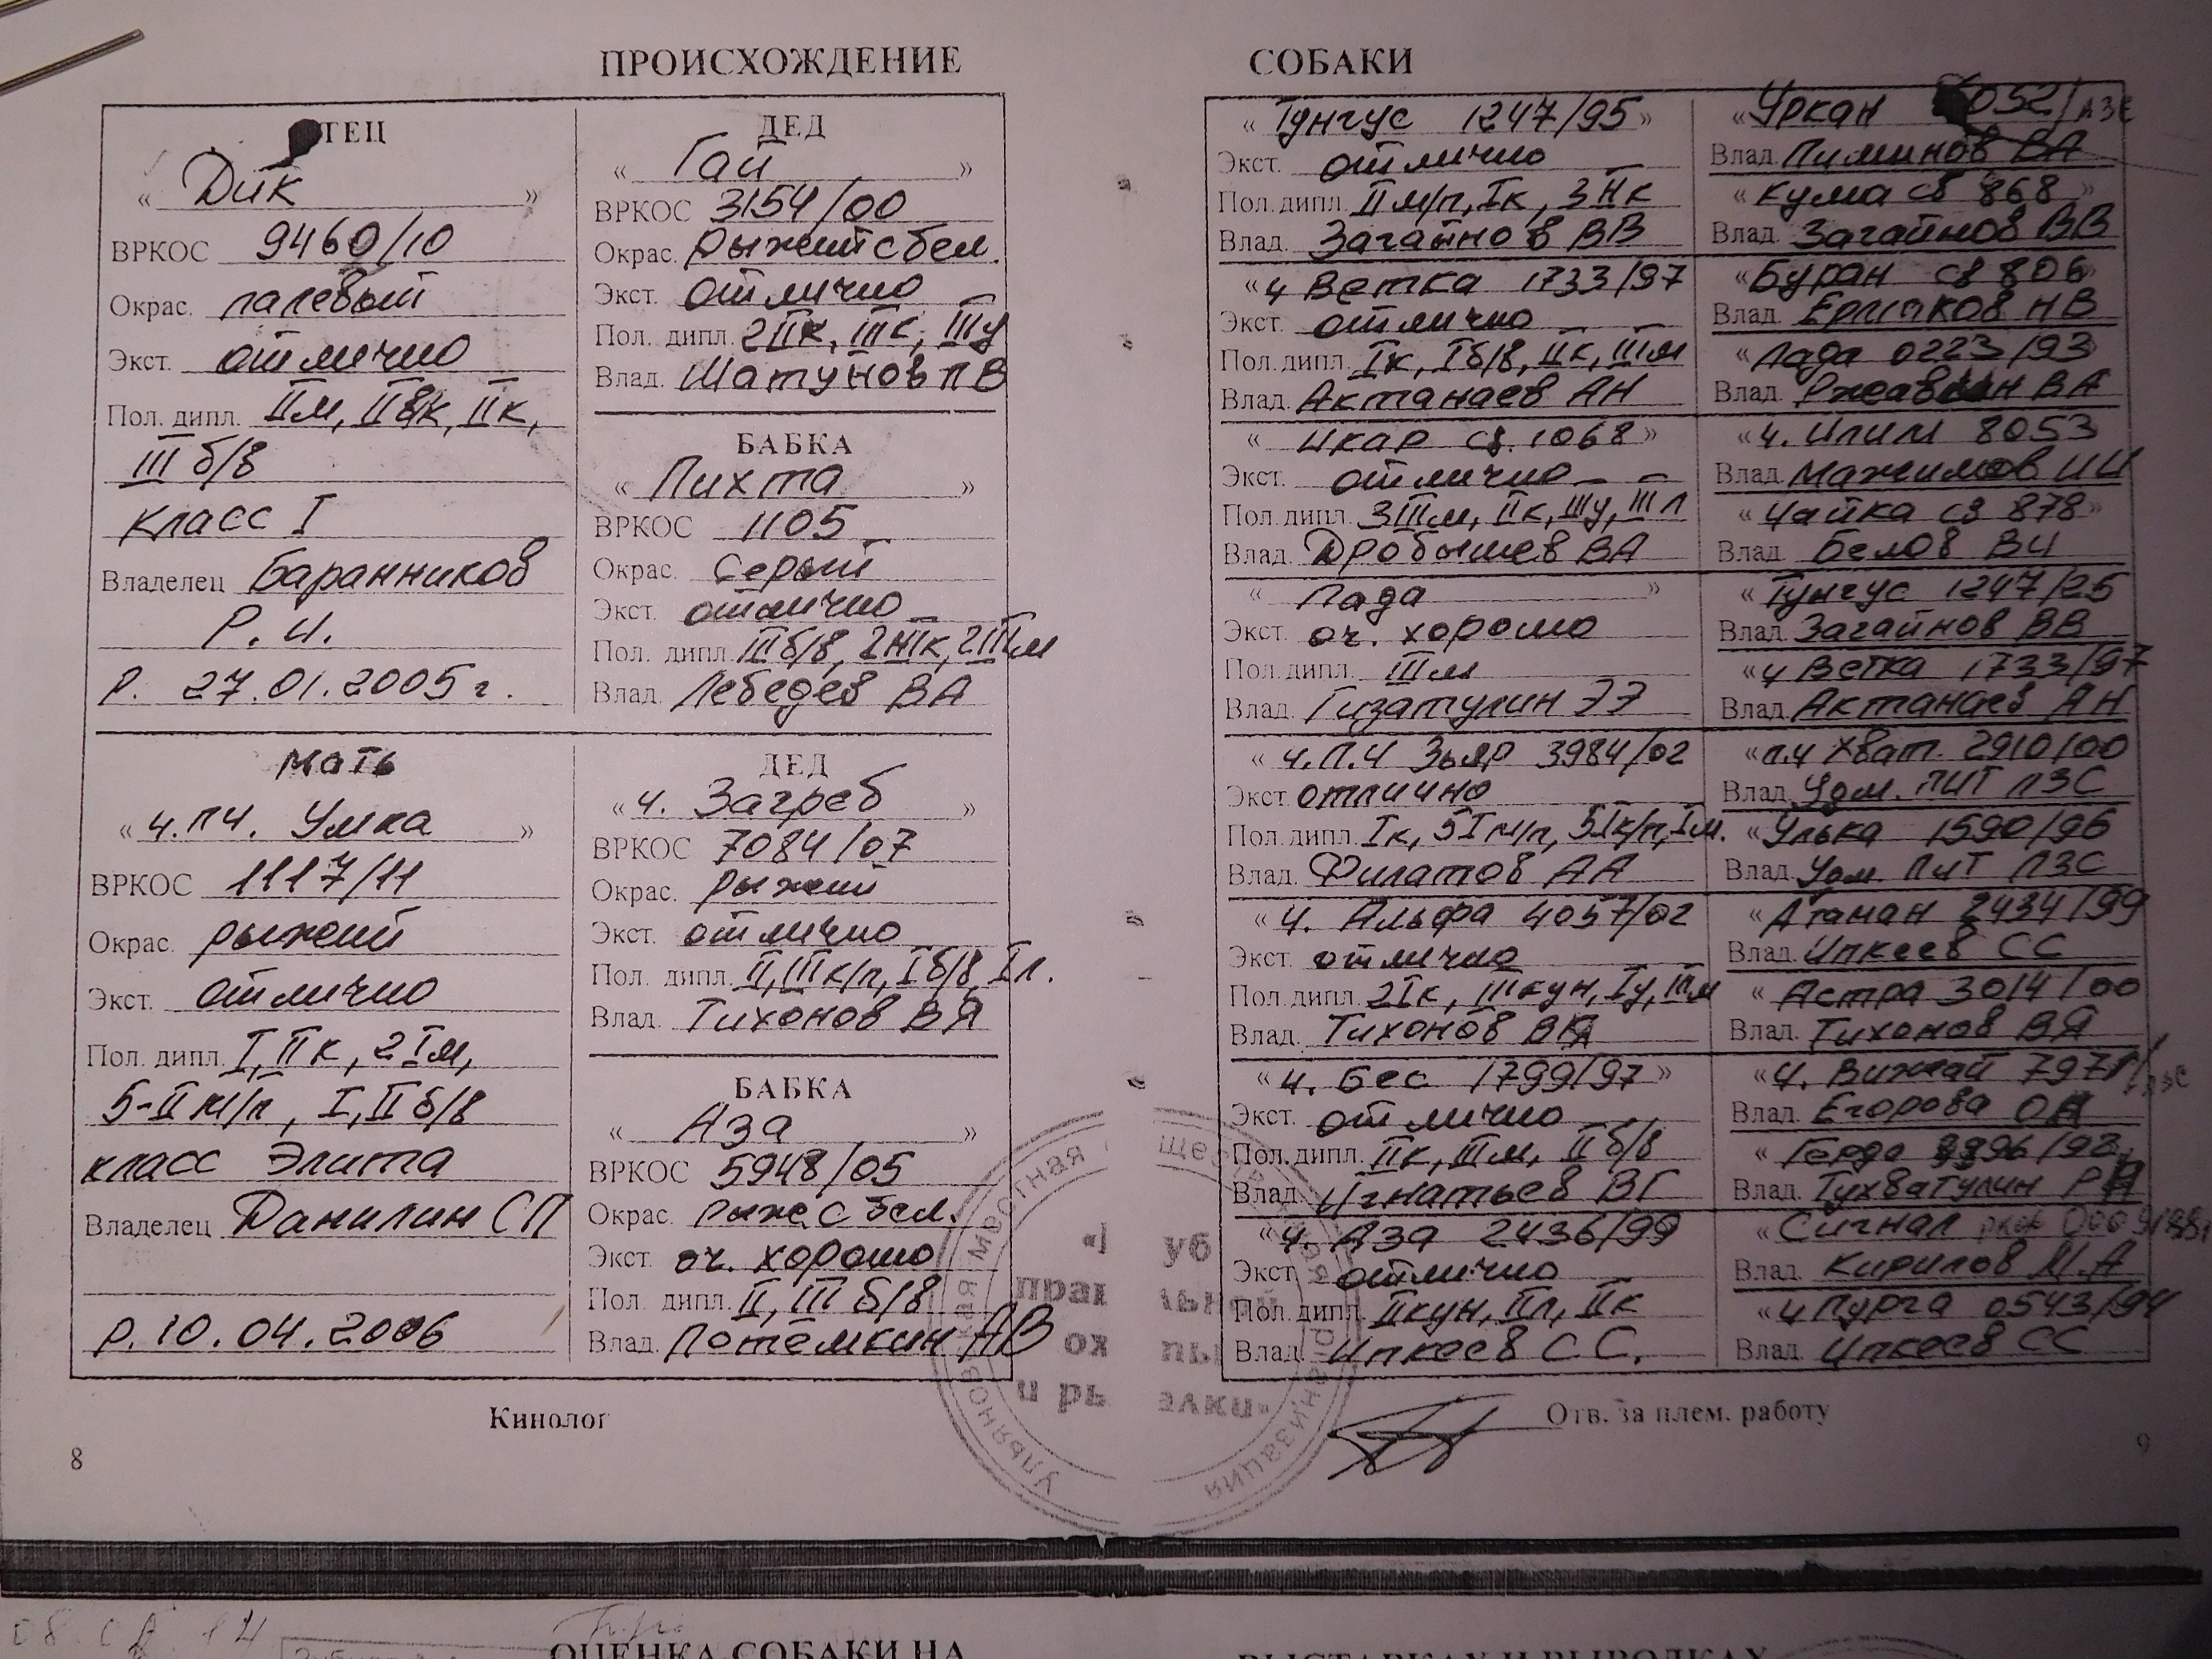 ПРОИСХОЖДЕНИЕ СОБАКИ
ТЕЦ
« Дик »
ВРКОС 9460/10
Окрас. палевый
Экст. отлично
Пол. дипл. IIм, IIвк, IIк,
III б/в
класс I
Владелец Баранников
Р. И.
Р. 27.01.2005 г.
ДЕД
« Гай »
ВРКОС 3154/00
Окрас. Рыжий с бел.
Экст. отлично
Пол. дипл. 2IIк, IIIк, IIIу
Влад. Шатунов П В
БАБКА
« Пихта »
ВРКОС 1105
Окрас. Серый
Экст. отлично
Пол. дипл. III б/в, 2IIIк, 2IIIм
Влад. Лебедев ВА
Мать
« ч.пч. Умка »
ВРКОС 1117/11
Окрас. рыжий
Экст. отлично
Пол. дипл. I, II к, 2 Iм,
5-II м/п, I, II б/в
класс Элита
Владелец Данилин СП
р. 10.04.2006
ДЕД
« ч. Загреб »
ВРКОС 7084/07
Окрас. рыжий
Экст. отлично
Пол. дипл. II, III к/п, I б/в, Iл.
Влад. Тихонов ВЯ
БАБКА
« Аза »
ВРКОС 5948/05
Окрас. рыже с бел.
Экст. оч. хорошо
Пол. дипл. II, III б/в
Влад. Потёмкин АВ
« Тунгус 1247/95 »
Экст. отлично
Пол. дипл. II м/п, Iк, 3 IIк
Влад. Загайнов ВВ
« ч Ветка 1733/97
Экст. отлично
Пол. дипл. Iк, I б/в, IIк, IIIм
Влад. Актанаев АН
« Икар св. 1068 »
Экст. отлично
Пол. дипл. 3IIIм, IIк, IIIу, III л
Влад. Дробышев ВА
« Лада »
Экст. оч. хорошо
Пол. дипл. IIIм
Влад. Гизатулин ЭЭ
« ч.п.ч Зьяр 3984/02
Экст. отлично
Пол. дипл. Iк, 5I м/п, 5Iк/п, Iм.
Влад. Филатов АА
« ч. Альфа 4057/02
Экст. отлично
Пол. дипл. 2Iк, III кун, Iу, IIIм
Влад. Тихонов ВЯ
« ч. Бес 1799/97 »
Экст. отлично
Пол. дипл. IIк, IIIм, II б/в
Влад. Игнатьев ВГ
« ч. Аза 2436/99
Экст. отлично
Пол. дипл. IIкун, IIл, IIк
Влад. Ипкеев С С.
« Уркан 052/
Влад. Пиминов ВА
« Кума св 868 »
Влад. Загайнов ВВ
« Буран св 806 »
Влад. Ермаков НВ
« Лада 0223/93
Влад. ВА
« ч. Илим 8053
Влад. Мажимов ИИ
« Чайка св 878 »
Влад. Белов ВИ
« Тунгус 1247/25
Влад. Загайнов ВВ
« ч Ветка 1733/97
Влад. Актанаев АН
« п.ч Хват. 2910/00
Влад. Удм. ПИТ ЛЗС
« Улька 1590/96
Влад. Удм. ПИТ ЛЗС
« Атаман 2434/99
Влад. Ипкеев СС
« Астра 3014/00
Влад. Тихонов ВЯ
« ч. Вижай
Влад. Егорова
« Герда
Влад. Тухватулин
« Сигнал
Влад. Кирилов М.А
« ч Пурга 0543/94
Влад. Ипкеев СС
Кинолог
Отв. за плем. работу
8
9
ОЦЕНКА СОБАКИ НА ВЫСТАВКАХ И ВЫВОДКАХ